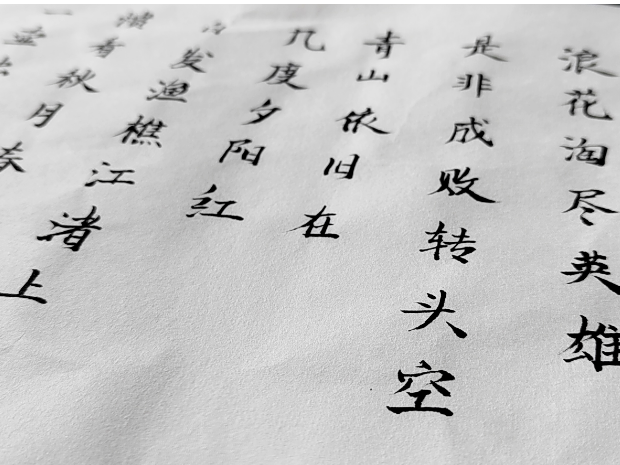 浪花淘尽英雄
是非成败转头空
青山依旧在
几度夕阳红
发渔樵江渚上
惯看秋月春
一壶